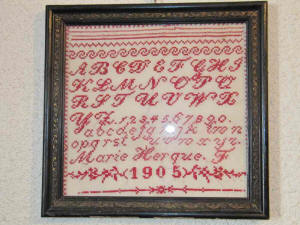 A B C D E F G H I
K L M N O P Q
R S T U V W X
Y Z. 1 2 3 4 5 6 7 8 9 0.
a b c d e f g h i j k l m n
o p q r s t u v w x y z.
Marie Herque. F
1905